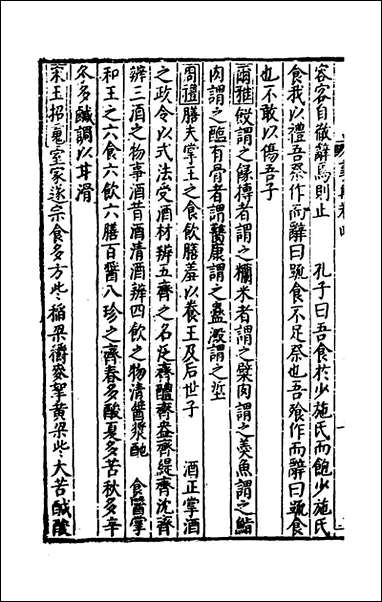 客客自徹辭焉則止　孔子曰吾食於少施氏而飽少施氏
食我以禮吾祭作而辭曰疏食不足祭也吾飱作而辭曰疏食
也不敢以傷吾子
爾雅餀謂之餯摶者謂之糷米者謂之糪肉謂之羹魚謂之鮨
肉謂之醢有骨者謂之臡康謂之蠱澱謂之垽
周禮膳夫掌王之食飲膳羞以養王及后世子　酒正掌酒
之政令以式法受酒材辨五齊之名泛齊醴齊盎齊緹齊沈齊
辨三酒之物事酒昔酒清酒辨四飲之物清醫漿酏　食醫掌
和王之六食六飲六膳百醬八珍之齊春多酸夏多苦秋多辛
冬多鹹調以甘滑
宋玉招䰟室家遂宗食多方些稻粱穱麥挐黃粱些大苦鹹酸